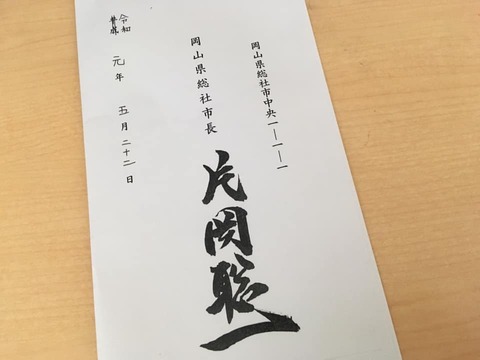 岡山県総社市中央一ー一ー一
岡山県総社市長
片岡聡一
令和
元年 五月二十二日